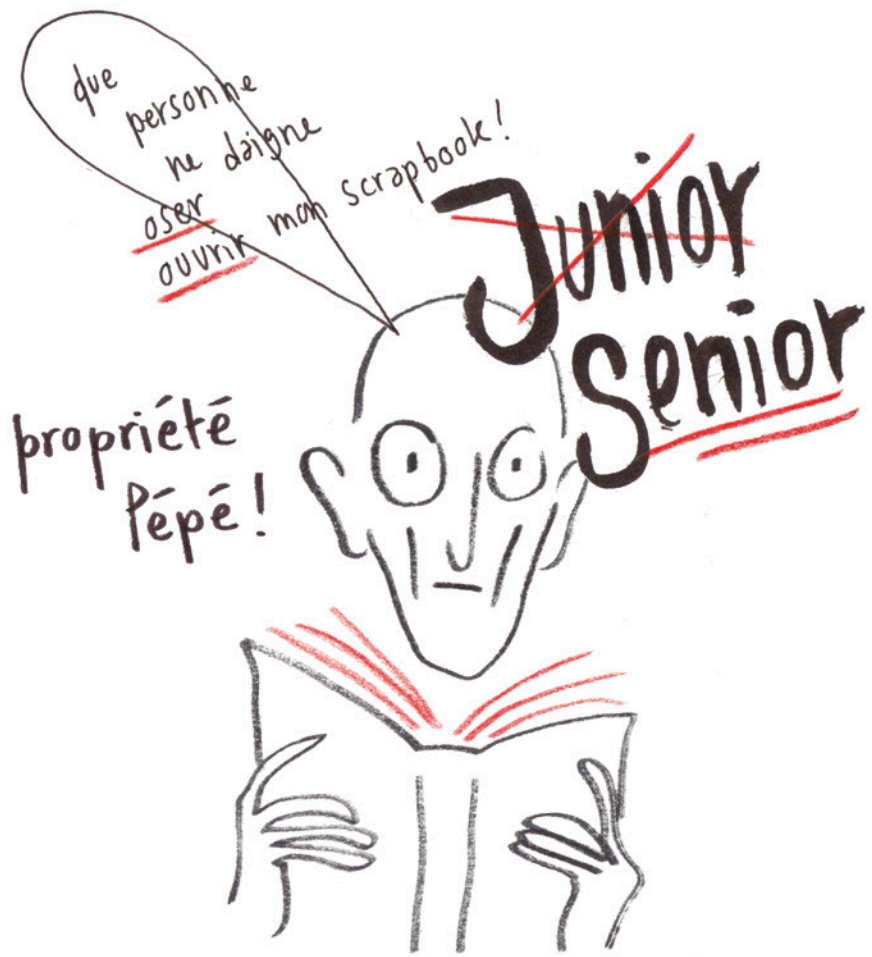 que
personne
ne daigne
oser
ouvrir mon scrapbook!
Junior
Senior
propriété
Pépé!